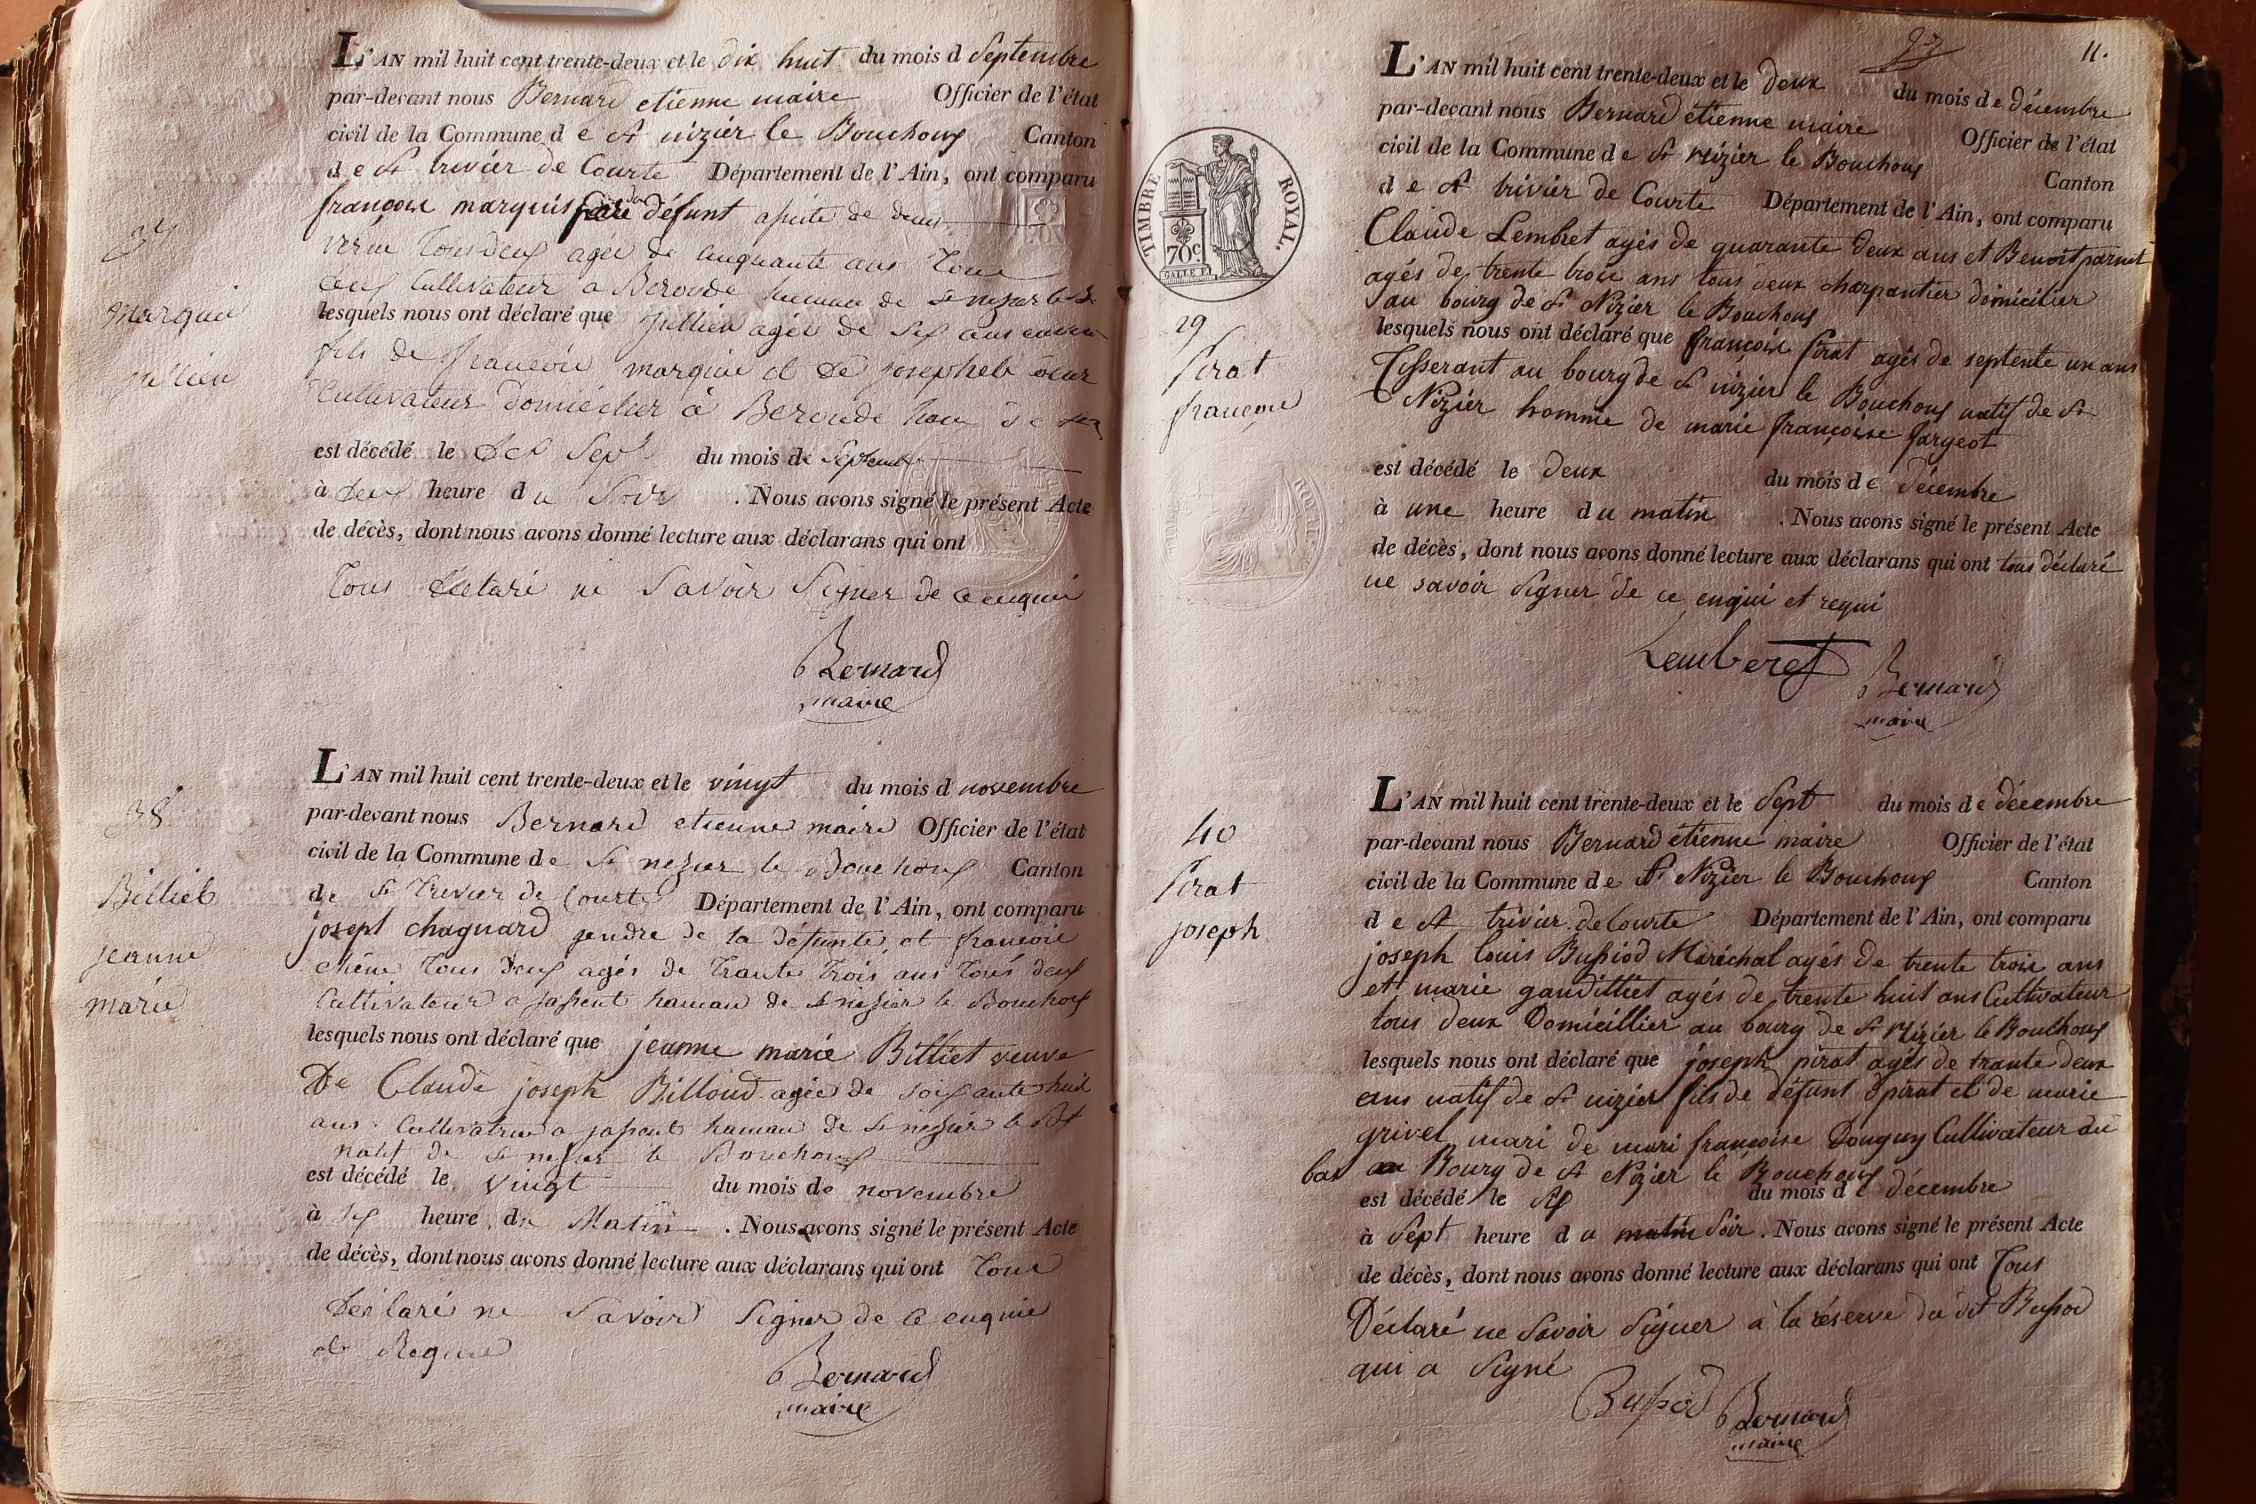 L'AN mil huit cent trente-deux et le dix huit du mois d Septembre
par-devant nous Bernard etienne maire Officier de l'état
civil de la Commune d e St nizier le Bouchoux Canton
d e St trivier de Courte Département de l'Ain, ont comparu
françois marquis défunt de deux
tous deux agée de cinquante ans tous
deux Cultivateur a Beroude hameau de St nezier le B
lesquels nous ont déclaré que jullien agée de six ans
fils de françois marquis et de josephete
Cultivateur domicilier à Beroude
est décédé le dix sept du mois de Septembre
à deux heure d u Soir . Nous avons signé le présent Acte
de décès, dont nous avons donné lecture aux déclarans qui ont
Tous déclaré ne Savoir Signer de ce enquis
Bernard
maire
37
marquis
jullien
L'AN mil huit cent trente-deux et le vingt du mois d novembre
par-devant nous Bernard etienne maire Officier de l'état
civil de la Commune de St nezier le Bouchoux Canton
de St Trevier de Courte Département de l'Ain, ont comparu
josept chagnard gendre de la défunte et francois
chêne Tous deux agés de trante trois ans Tous deux
Cultivateur a japent hamau de St nezier le Bouchoux
lesquels nous ont déclaré que jeanne marie Billiet veuve
De Claude joseph Billoud agée de soixante huit
ans Cultivatrice a japent hamau de St nezier le Bx
natif de St nezier le Bouchoux
est décédé le vingt du mois de novembre
à six heure du Matin . Nous avons signé le présent Acte
de décès, dont nous avons donné lecture aux déclarans qui ont Tous
Déclaré ne Savoir Signer de ce enquis
et Requis
Bernard
maire
38
Billiet
jeanne
marie
11.
L'AN mil huit cent trente-deux et le deux du mois de décembre
par-devant nous Bernard étienne maire Officier de l'état
civil de la Commune d e St Nizier le Bouchoux Canton
d e St trivier de Courte Département de l'Ain, ont comparu
Claude Lembret agés de quarante deux ans et Benoit parnet
agés de trente trois ans tous deux charpantier domicilier
au bourg de St Nizier le Bouchoux
lesquels nous ont déclaré que françois pirat agés de septente un ans
Tisserant au bourg de St nizier le Bouchoux natif de St
Nizier homme de marie françoise fargeot
est décédé le deux du mois de décembre
à une heure du matin . Nous avons signé le présent Acte
de décès, dont nous avons donné lecture aux déclarans qui ont tous déclaré
ne savoir signer de ce enqui et requi
Lemberet Bernard
maire
TIMBRE ROYAL.
70c
29
pirat
françois
L'AN mil huit cent trente-deux et le Sept du mois de décembre
par-devant nous Bernard étienne maire Officier de l'état
civil de la Commune d e St Nizier le Bouchoux Canton
d e St trivier de Courte Département de l'Ain, ont comparu
joseph louis Bussiod Maréchal agés de trente trois ans
et marie gandilliet agés de trente huit ans Cultivateur
tous deux Domicillier au bourg de St Nizier le Bouchoux
lesquels nous ont déclaré que joseph pirat agés de trante deux
ans natif de St nizier fils de défunt pirat et de marie
grivel mari de mari françoise Donguy Cultivateur au
bas Bourg de St Nizier le Bouchoux
est décédé le six du mois d e décembre
à Sept heure d u matin Soir . Nous avons signé le présent Acte
de décès, dont nous avons donné lecture aux déclarans qui ont Tous
Déclaré ne Savoir Signer à la réserve du dit Bussod
qui a Signé
Bussod Bernard
maire
40
pirat
joseph